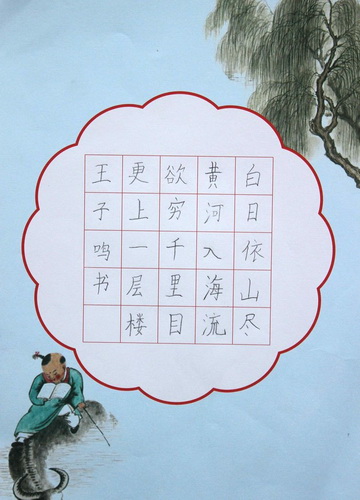 白日依山尽
黄河入海流
欲穷千里目
更上一层楼
王子鸣书